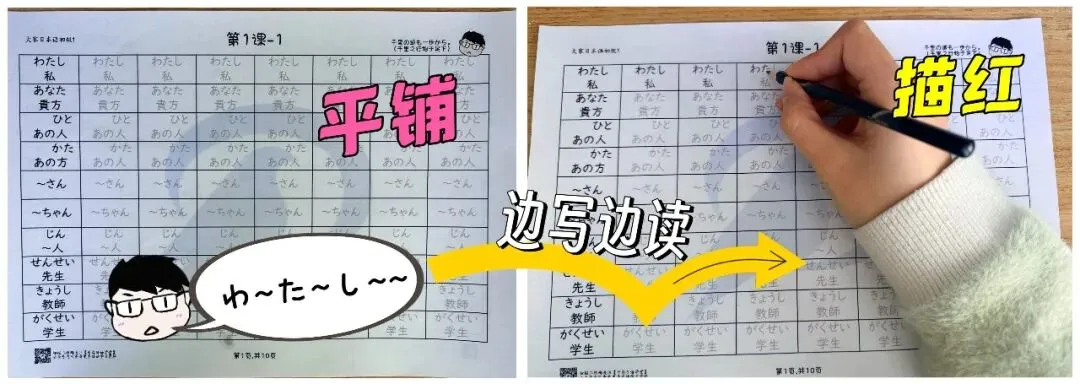 大家日本语初级1
第1课-1
千里の道も一歩から。
(千里之行始于足下)
わたし わたし わたし わたし わたし わたし わたし わたし
私 私 私 私 私
あなた あなた あなた あなた あなた
貴方 貴方 貴方 貴方 貴方
ひと ひと ひと ひと ひと
あの人 あの人 あの人 あの人 あの人
かた かた かた かた かた かた かた かた
あの方 あの人 あの人 あの人 あの人 あの人 あの人 あの人
～さん ～さん ～さん ～さん ～さん ～さん ～さん ～さん
～ちゃん ～ちゃん ～ちゃん ～ちゃん ～ちゃん ～ちゃん ～ちゃん ～ちゃん
じん じん じん じん
～人 ～人 ～人
せんせい
先生
きょうし
教師
がくせい がくせい
学生 学生 学生 学生 学生 学生 学生 学生
第1页,共10页
平铺
わ～た～し～～
大家日本语初级1
第1课-1
千里の道も一歩から。
(千里之行始于足下)
わたし わたし わたし わた
私 私 私 私
あなた あなた あなた あなた
貴方 貴方 貴方 貴方
ひと ひと ひと ひと
あの人 あの人 あの人 あの人
かた かた かた かた
あの方 あの人 あの人 あの人
～さん ～さん ～さん ～さん
～ちゃん
じん じん
～人 ～人
せんせい せんせい
先生 先生 先生 先生
きょうし きょうし きょうし きょうし きょうし
教師 教師 教師 教師 教師
がくせい がくせい がくせい がくせい がくせい
学生 学生 学生 学生 学生
第1页,共10页
描红
边写边读